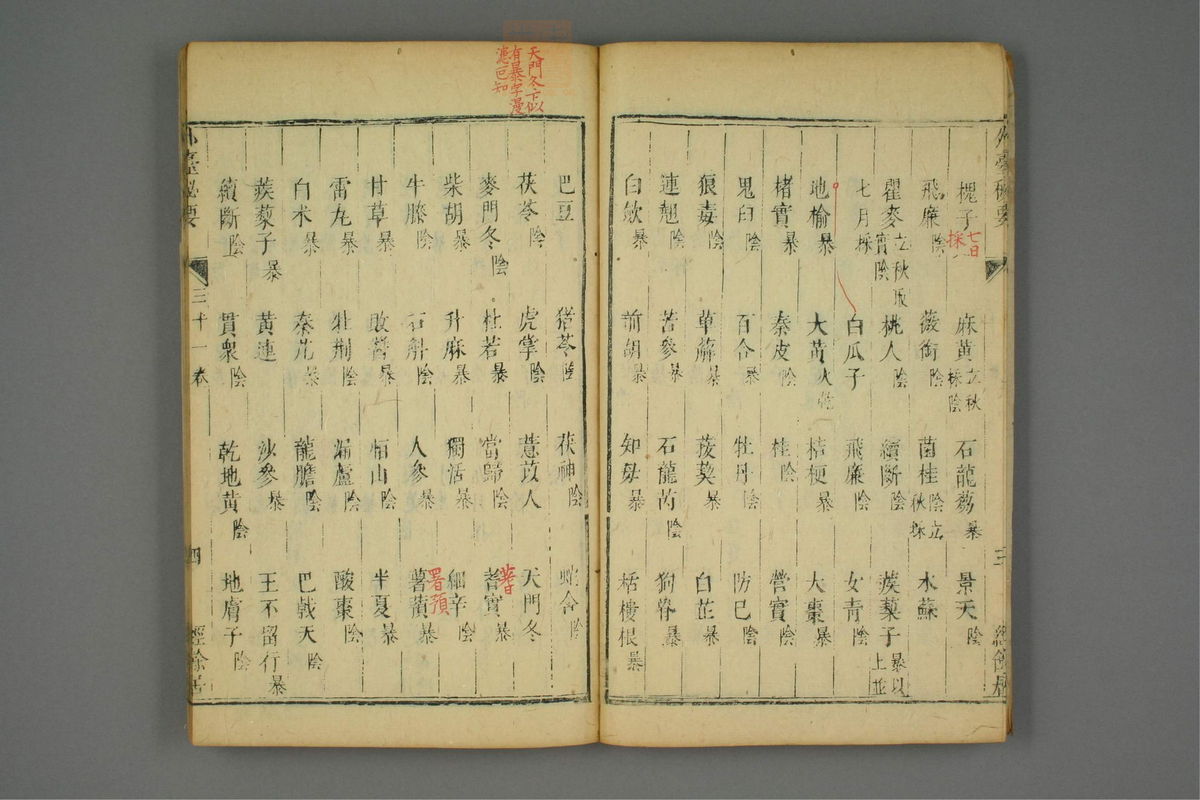 槐子 麻黃立秋採陰 石龍芻暴 景天陰
七日採
飛廉陰 薇銜陰 菌桂陰立秋採 水蘇
瞿麥立秋採實陰 桃人陰 續斷陰 蒺藜子暴以上並
七月採 白瓜子 飛廉陰 女青陰
地榆暴 大黃火乾 桔梗暴 大棗暴
楮實暴 秦皮陰 桂陰 營實陰
鬼臼陰 百合暴 牡丹陰 防已陰
狼毒陰 萆薢暴 菝葜暴 白芷暴
連翹陰 苦參暴 石龍芮陰 狗脊暴
白歛暴 前胡暴 知母暴 栝樓根暴
外臺秘要 三 經餘居
天門冬下似
有暴字漫
漶已知
巴豆 猪苓陰 茯神陰 蛇合陰
茯苓陰 虎掌陰 薏苡人 天門冬
麥門冬陰 杜若暴 當歸陰 蓍實暴
蓍
柴胡暴 升麻暴 獨活暴 細辛陰
牛膝陰 石斛陰 人參暴 薯蕷暴
署預
甘草暴 敗醬暴 恒山陰 半夏暴
雷丸暴 牡荆陰 漏蘆陰 酸棗陰
白术暴 秦艽暴 龍膽陰 巴戟天陰
蒺藜子暴 黃連 沙參暴 王不留行暴
續斷陰 貫衆陰 乾地黃陰 地膚子陰
外臺秘要 三十一卷 四 經餘居